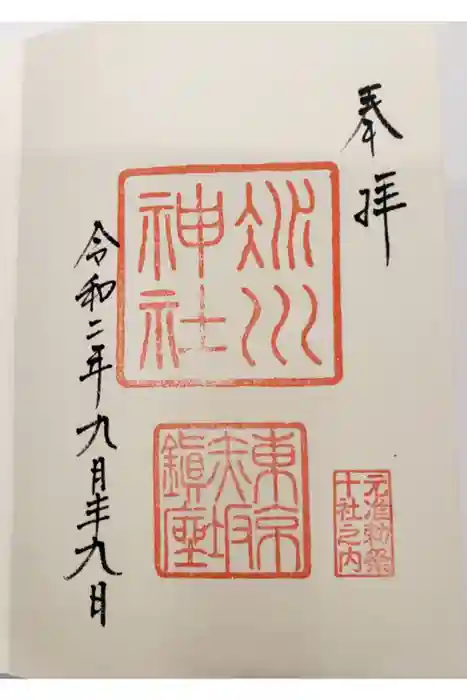 奉拝
氷川
神社
東京
赤坂
鎭座
元准勅祭
十社之内
令和二年九月二十九日